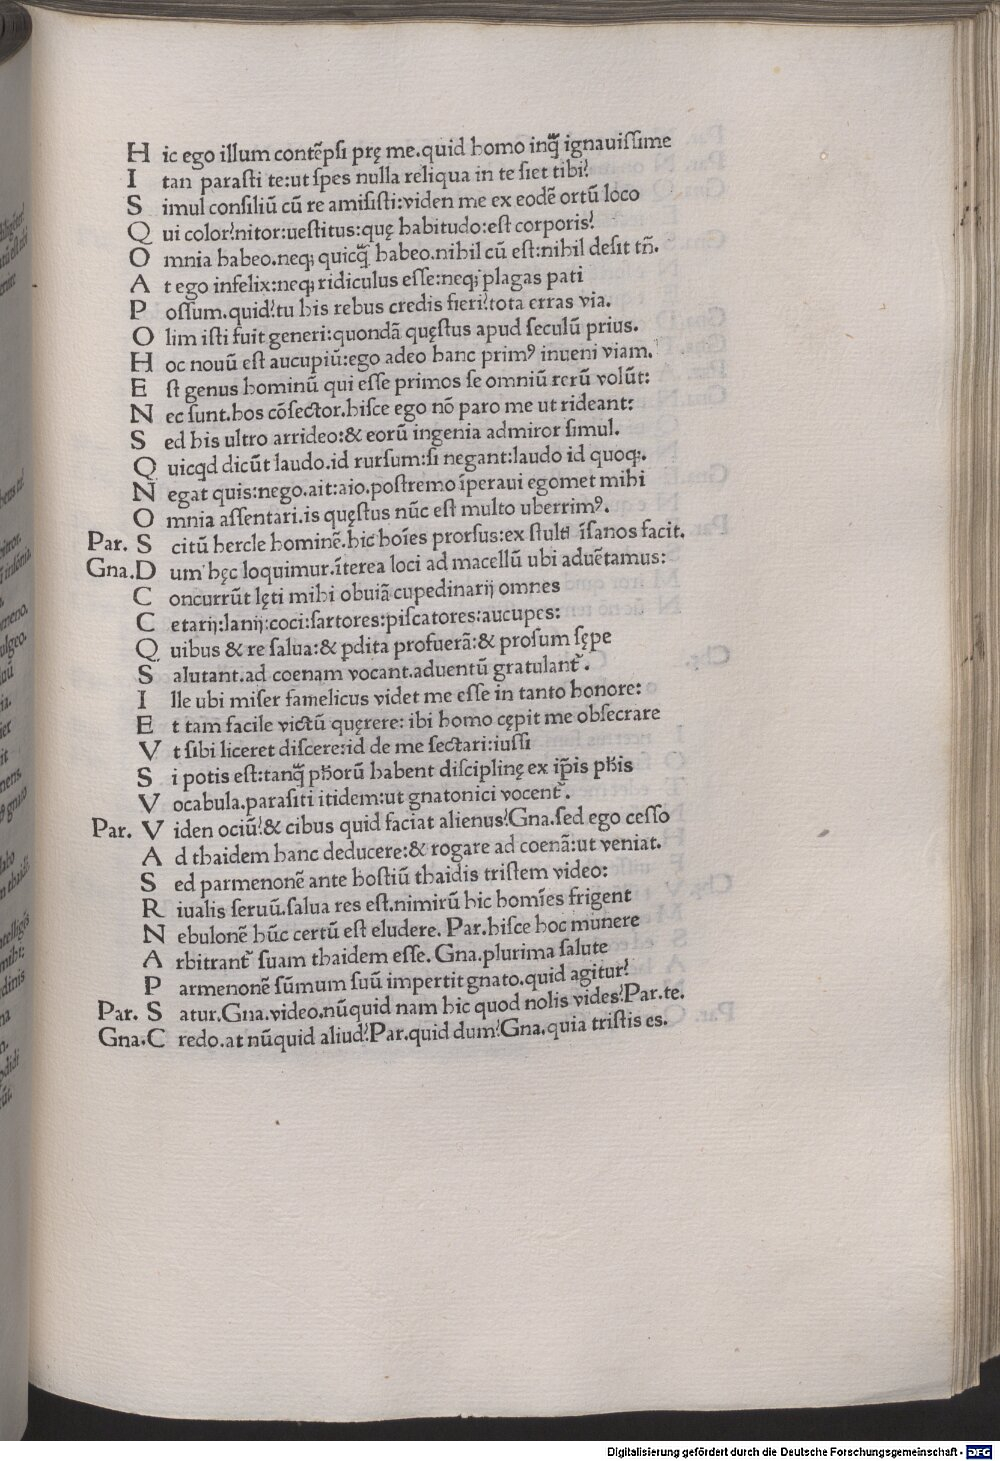 H ic ego illum contẽpſi prę me.quid homo inꝗ̃ ignauiſſime
I tan paraſti te:ut ſpes nulla reliqua in te ſiet tibi?
S imul conſiliũ cũ re amiſiſti:viden me ex eodẽ ortũ loco
Q ui color?nitor:ueſtitus:quę habitudo:eſt corporis?
O mnia habeo.neq; quicꝗ̃ habeo.nihil cũ eſt:nihil deſit tñ.
A t ego infelix:neq; ridiculus eſſe:neq; plagas pati
P oſſum.quid?tu his rebus credis fieri?tota erras via.
O lim iſti fuit generi:quondã quęſtus apud ſeculũ prius.
H oc nouũ eſt aucupiũ:ego adeo hanc primꝰ inueni viam.
E ſt genus hominũ qui eſſe primos ſe omniũ rerũ volũt:
N ec ſunt.hos cõſector.hiſce ego nõ paro me ut rideant:
S ed his ultro arrideo:& eorũ ingenia admiror ſimul.
Q uicqd dicũt laudo.id rurſum:ſi negant:laudo id quoq;.
N egat quis:nego.ait:aio.poſtremo ĩperaui egomet mihi
O mnia aſſentari.is quęſtus nũc eſt multo uberrimꝰ.
Par. S citũ hercle hominẽ.hic hoĩes prorſus:ex ſtulti ĩſanos facit.
Gna. D um hęc loquimur.ĩterea loci ad macellũ ubi aduẽtamus:
C oncurrũt lęti mihi obuiã cupedinarij omnes
C etarij:lanij:coci:ſartores:piſcatores:aucupes:
Q uibus & re ſalua:& ꝑdita profuerã:& proſum ſępe
S alutant.ad coenam vocant.aduentũ gratulant᷑.
I lle ubi miſer famelicus videt me eſſe in tanto honore:
E t tam facile victũ quęrere: ibi homo cępit me obſecrare
V t ſibi liceret diſcere:id de me ſectari:iuſſi
S i potis eſt:tanꝗ̃ ph̃orũ habent diſciplinę ex ip̃is ph̃is
V ocabula.paraſiti itidem:ut gnatonici vocent᷑.
Par. V iden ociũ?& cibus quid faciat alienus?Gna.ſed ego ceſſo
A d thaidem hanc deducere:& rogare ad coenã:ut veniat.
S ed parmenonẽ ante hoſtiũ thaidis triſtem video:
R iualis ſeruũ.ſalua res eſt.nimirũ hic homĩes frigent
N ebulonẽ hũc certũ eſt eludere. Par.hiſce hoc munere
A rbitrant᷑ ſuam thaidem eſſe. Gna.plurima ſalute
P armenonẽ ſũmum ſuũ impertit gnato.quid agitur?
Par. S atur.Gna.video.nũquid nam hic quod nolis vides?Par.te.
Gna. C redo.at nũquid aliud?Par.quid dum?Gna.quia triſtis es.
Digitalisierung gefördert durch die Deutsche Forschungsgemeinschaft - DFG